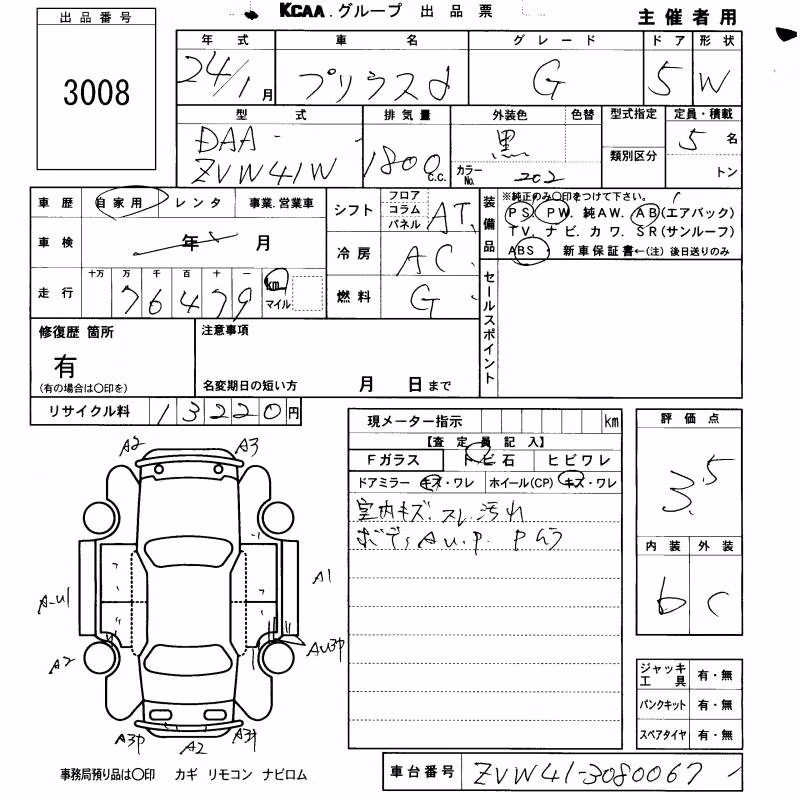 KCAA.グループ 出品票
主催者用
出品番号
3008
年式 車名 グレード ドア 形状
24/1月 プリウスα G 5 W
型式 排気量 外装色 色替 型式指定 定員・積載
DAA-
ZVW41W 1800 C.C. 黒 カラーNo. 202 類別区分 5名
トン
車歴 自家用 レンタ 事業.営業車
車検 年 月
走行 十万 万 千 百 十 一
76479 km マイル
シフト フロア コラム パネル AT
冷房 AC
燃料 G
装備品 ※純正のみ○印をつけて下さい。
PS. PW. 純AW. AB(エアバック)
TV. ナビ. カワ. SR(サンルーフ)
ABS・ 新車保証書←(注) 後日送りのみ
セールスポイント
修復歴 箇所
有
(有の場合は○印を)
注意事項
名変期日の短い方 月 日まで
リサイクル料 13220円
現メーター指示 km
【査定員記入】
Fガラス トビ石 ヒビワレ
ドアミラー キズ・ワレ ホイール(CP) キズ・ワレ
室内キズ.スレ.汚れ
ボディA.U.P.
評価点
3.5
内装 外装
b c
A2 A3
A1
A-U1
AU3P
A2
A3P A2 A3P
ジャッキ 工具 有・無
パンクキット 有・無
スペアタイヤ 有・無
事務局預り品は○印 カギ リモコン ナビロム
車台番号 ZVW41-3080067